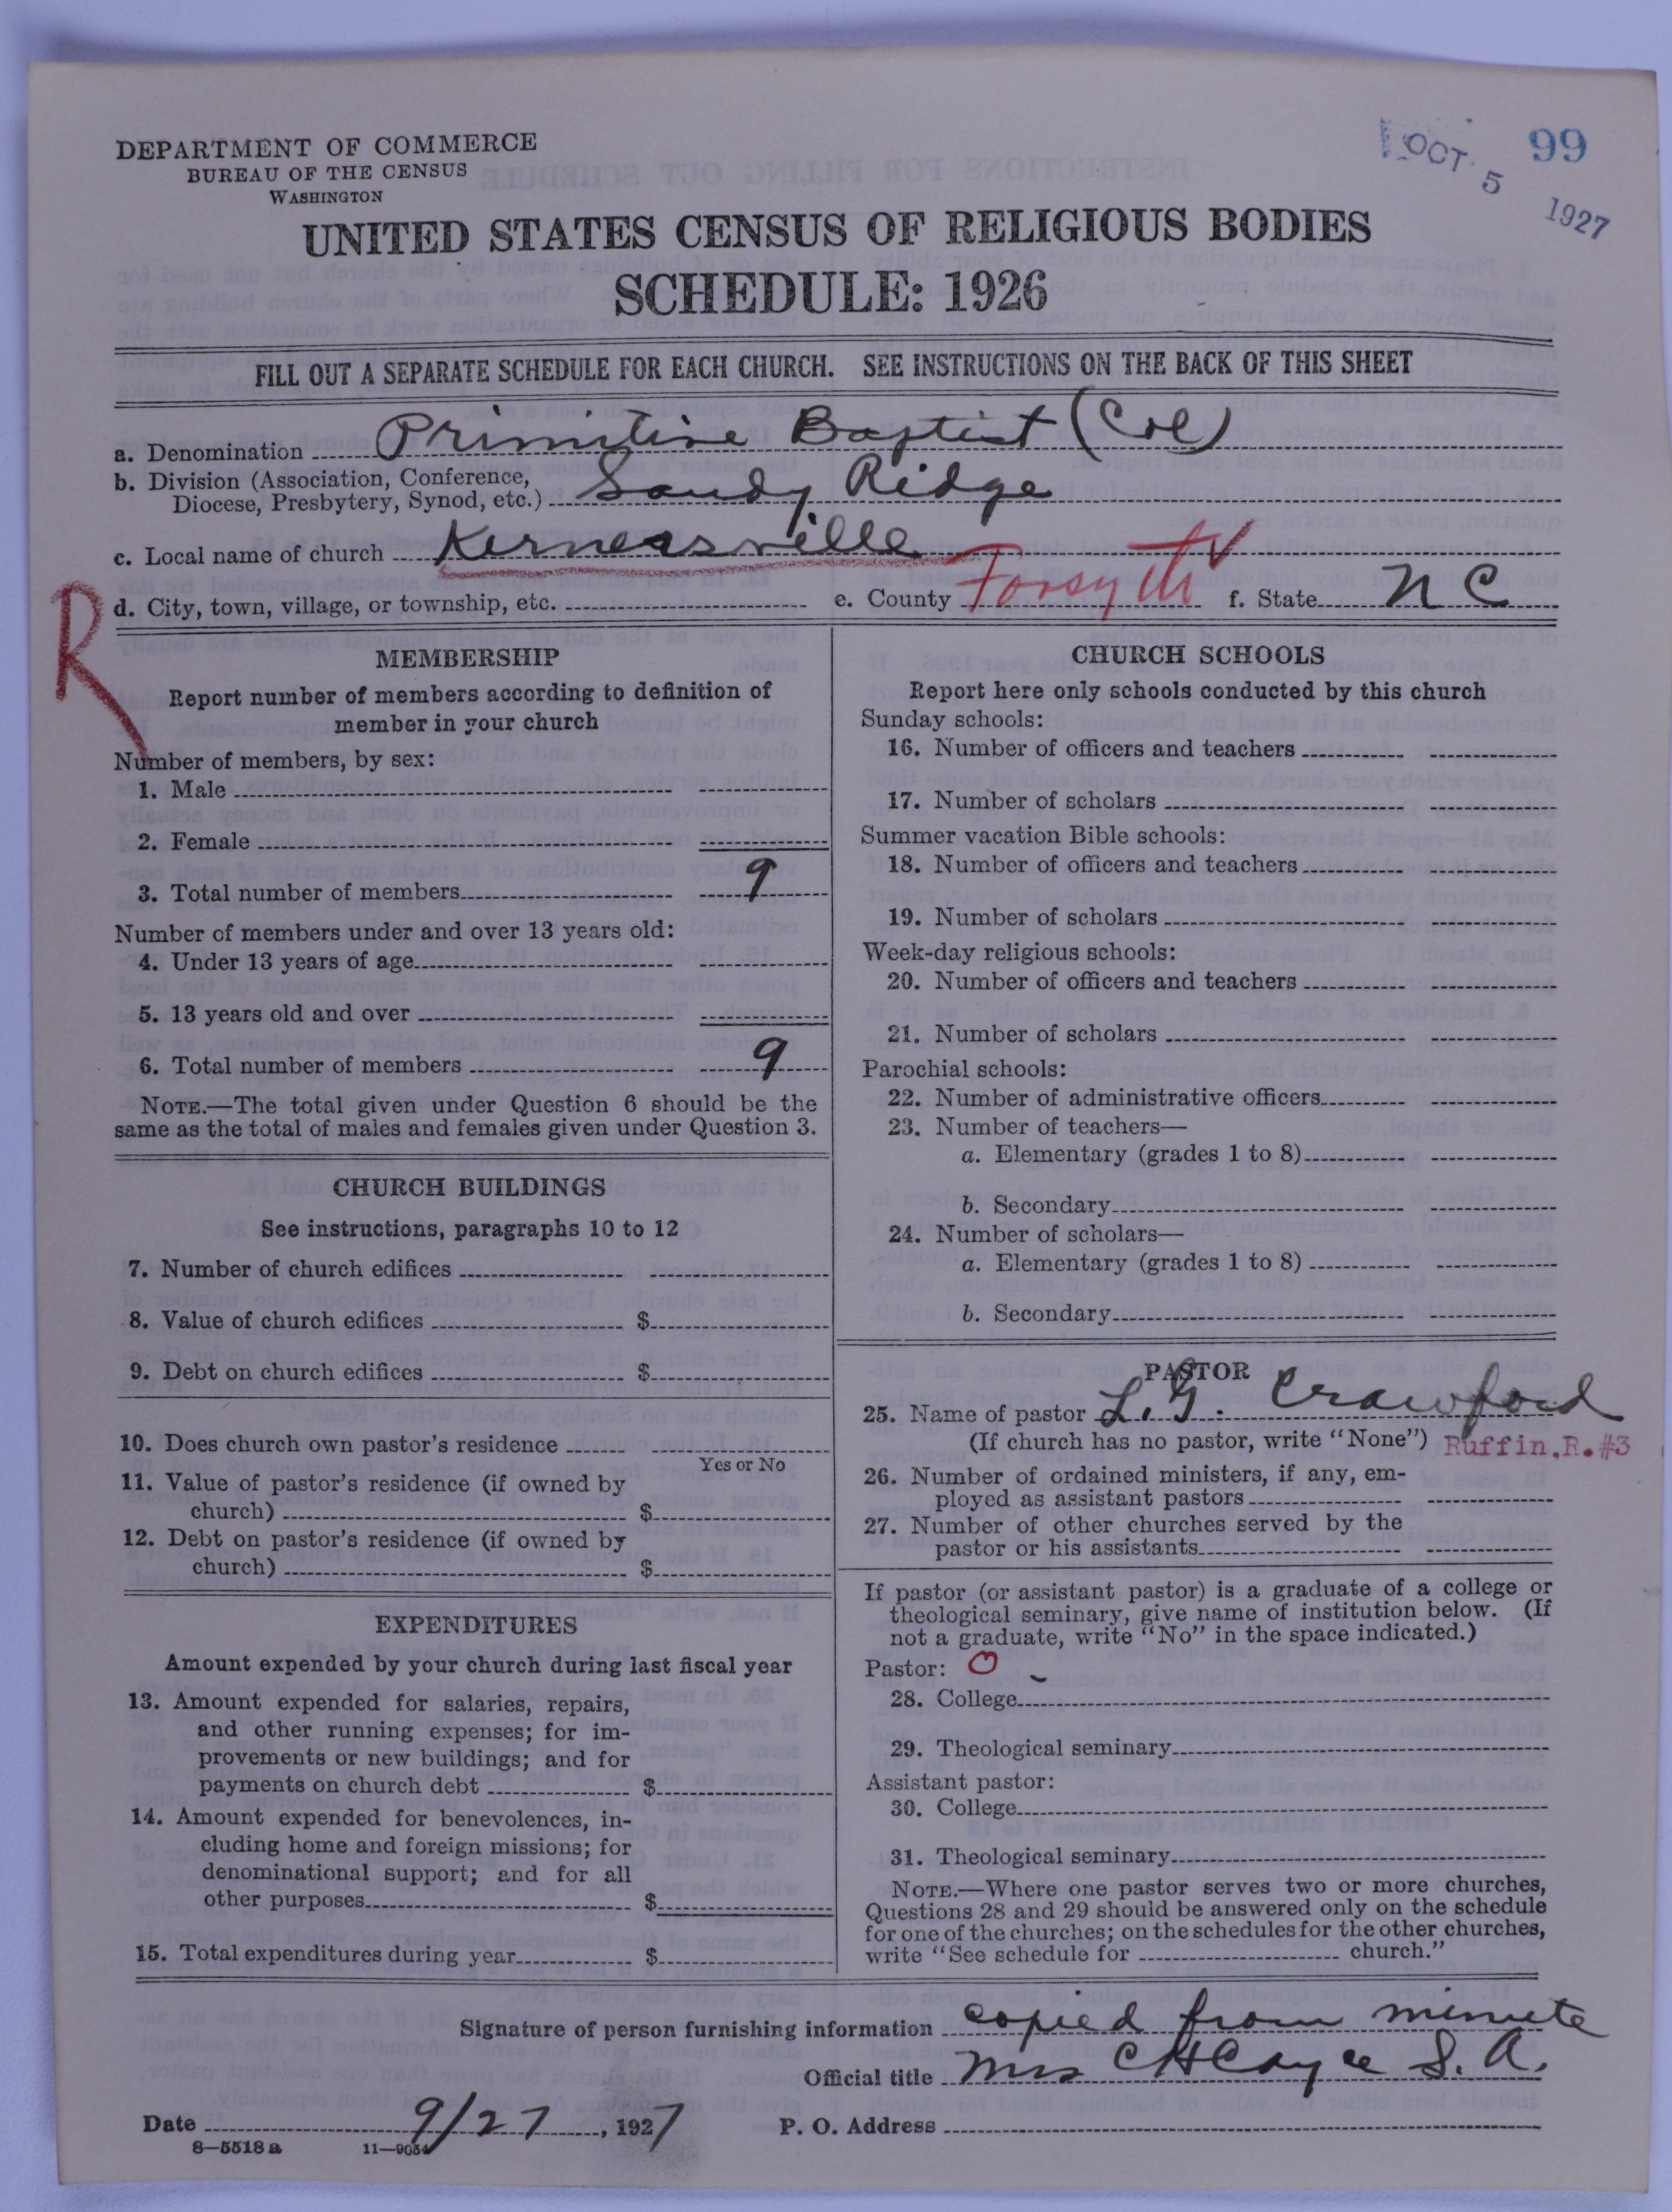 DEPARTMENT OF COMMERCE
BUREAU OF THE CENSUS
WASHINGTON
OCT 5 1927
99
UNITED STATES CENSUS OF RELIGIOUS BODIES
SCHEDULE: 1926
FILL OUT A SEPARATE SCHEDULE FOR EACH CHURCH. SEE INSTRUCTIONS ON THE BACK OF THIS SHEET
a. Denomination Primitive Baptist (Col)
b. Division (Association, Conference,
Diocese, Presbytery, Synod, etc.) Sandy Ridge
c. Local name of church Kernersville
R
d. City, town, village, or township, etc. e. County Forsyth f. State N C
MEMBERSHIP
Report number of members according to definition of
member in your church
Number of members, by sex:
1. Male
2. Female
3. Total number of members 9
Number of members under and over 13 years old:
4. Under 13 years of age
5. 13 years old and over
6. Total number of members 9
NOTE.—The total given under Question 6 should be the
same as the total of males and females given under Question 3.
CHURCH BUILDINGS
See instructions, paragraphs 10 to 12
7. Number of church edifices
8. Value of church edifices $
9. Debt on church edifices $
10. Does church own pastor's residence
Yes or No
11. Value of pastor's residence (if owned by
church) $
12. Debt on pastor's residence (if owned by
church) $
EXPENDITURES
Amount expended by your church during last fiscal year
13. Amount expended for salaries, repairs,
and other running expenses; for im-
provements or new buildings; and for
payments on church debt $
14. Amount expended for benevolences, in-
cluding home and foreign missions; for
denominational support; and for all
other purposes $
15. Total expenditures during year $
CHURCH SCHOOLS
Report here only schools conducted by this church
Sunday schools:
16. Number of officers and teachers
17. Number of scholars
Summer vacation Bible schools:
18. Number of officers and teachers
19. Number of scholars
Week-day religious schools:
20. Number of officers and teachers
21. Number of scholars
Parochial schools:
22. Number of administrative officers
23. Number of teachers—
a. Elementary (grades 1 to 8)
b. Secondary
24. Number of scholars—
a. Elementary (grades 1 to 8)
b. Secondary
PASTOR
25. Name of pastor L. G. Crawford
(If church has no pastor, write "None") Ruffin, R. #3
26. Number of ordained ministers, if any, em-
ployed as assistant pastors
27. Number of other churches served by the
pastor or his assistants
If pastor (or assistant pastor) is a graduate of a college or
theological seminary, give name of institution below. (If
not a graduate, write "No" in the space indicated.)
Pastor: O
28. College
29. Theological seminary
Assistant pastor:
30. College
31. Theological seminary
NOTE.—Where one pastor serves two or more churches,
Questions 28 and 29 should be answered only on the schedule
for one of the churches; on the schedules for the other churches,
write "See schedule for church."
Signature of person furnishing information copied from minute
Official title Mrs C H Cayce S. A.
Date 9/27, 1927 P. O. Address
8—5518 a 11—9054